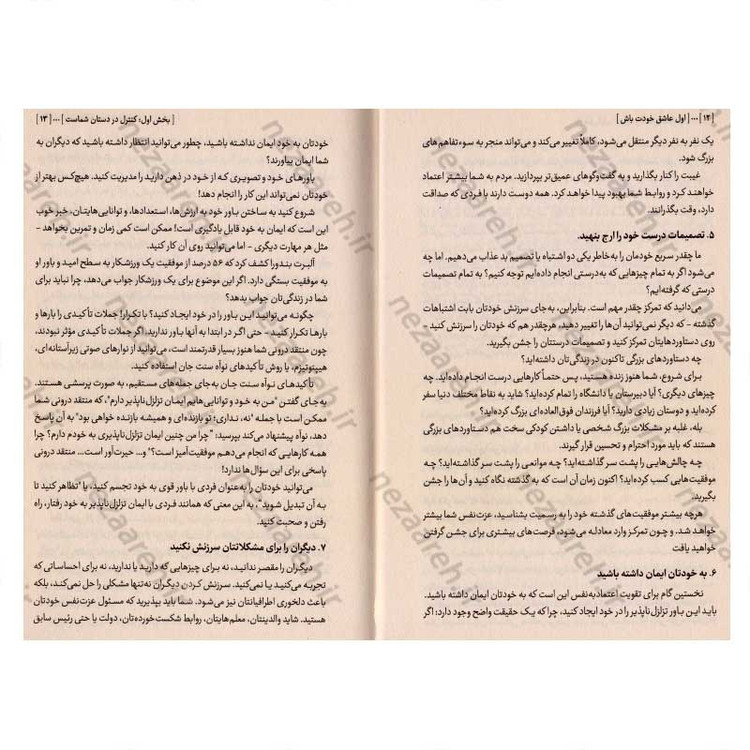 [ ۱۲ ] ... [ اول عاشق خودت باش ]
یک نفر به نفر دیگر منتقل می‌شود، کاملاً تغییر می‌کند و می‌تواند منجر به سوءتفاهم های
بزرگ شود.
غیبت را کنار بگذارید و به گفت‌وگوهای عمیق‌تر بپردازید. مردم به شما بیشتر اعتماد
خواهند کرد و روابط شما بهبود پیدا خواهد کرد. همه دوست دارند با فردی که صداقت
دارد، وقت بگذرانند.
۵. تصمیمات درست خود را ارج بنهید.
ما چقدر سریع خودمان را به‌خاطر یکی دو اشتباه یا تصمیم بد عذاب می‌دهیم. اما چه
می‌شود اگر به تمام چیزهایی که به‌درستی انجام داده‌ایم توجه کنیم؟ به تمام تصمیمات
درستی که گرفته‌ایم؟
می‌دانید که تمرکز چقدر مهم است. بنابراین، به‌جای سرزنش خودتان بابت اشتباهات
گذشته – که دیگر نمی‌توانید آن‌ها را تغییر دهید، هرچقدر هم که خودتان را سرزنش کنید –
روی دستاوردهایتان تمرکز کنید و تصمیمات درستتان را جشن بگیرید.
چه دستاوردهای بزرگی تاکنون در زندگی‌تان داشته‌اید؟
برای شروع، شما هنوز زنده هستید، پس حتماً کارهایی درست انجام داده‌اید. چه
چیزهای دیگری؟ آیا دبیرستان یا دانشگاه را تمام کرده‌اید؟ شاید به نقاط مختلف دنیا سفر
کرده‌اید و دوستان زیادی دارید؟ آیا فرزندان فوق‌العاده‌ای بزرگ کرده‌اید؟
بله، غلبه بر مشکلات بزرگ شخصی یا داشتن کودکی سخت هم دستاوردهای بزرگی
هستند که باید مورد احترام و تحسین قرار گیرند.
چه چالش‌هایی را پشت سر گذاشته‌اید؟ چه موانعی را پشت سر گذاشته‌اید؟ چه
موفقیت‌هایی کسب کرده‌اید؟ اکنون زمان آن است که به گذشته نگاه کنید و آن‌ها را جشن
بگیرید.
هرچه بیشتر موفقیت‌های گذشته خود را به رسمیت بشناسید، عزت‌نفس شما بیشتر
خواهد شد. و چون تمرکز وارد معادله می‌شود، فرصت‌های بیشتری برای جشن گرفتن
خواهید یافت
۶. به خودتان ایمان داشته باشید
نخستین گام برای تقویت اعتمادبه‌نفس این است که به خودتان ایمان داشته باشید.
باید این باور تزلزل‌ناپذیر را در خود ایجاد کنید، چرا که یک حقیقت واضح وجود دارد: اگر
[ بخش اول: کنترل در دستان شماست ] ... [ ۱۳ ]
خودتان به خود ایمان نداشته باشید، چطور می‌توانید انتظار داشته باشید که دیگران به
شما ایمان بیاورند؟
باورهای خود و تصویری که از خود در ذهن دارید را مدیریت کنید. هیچ‌کس بهتر از
خودتان نمی‌تواند این کار را انجام دهد!
شروع کنید به ساختن باور خود به ارزش‌ها، استعدادها، و توانایی‌هایتان. خبر خوب
این است که ایمان به خود قابل یادگیری است! ممکن است کمی زمان و تمرین بخواهد –
مثل هر مهارت دیگری – اما می‌توانید روی آن کار کنید.
آلبرت بندورا کشف کرد که ۵۶ درصد از موفقیت یک ورزشکار به سطح امید و باور او
به موفقیت بستگی دارد. اگر این موضوع برای یک ورزشکار جواب می‌دهد، چرا نباید برای
شما در زندگی‌تان جواب بدهد؟
چگونه می‌توانید این باور را در خود ایجاد کنید؟ با تکرار! جملات تأکیدی را بارها و
بارها تکرار کنید – حتی اگر در ابتدا به آنها باور ندارید. اگر جملات تأکیدی مؤثر نبودند،
چون منتقد درونی شما هنوز بسیار قدرتمند است، می‌توانید از نوارهای صوتی زیرآستانه‌ای،
هیپنوتیزم، یا روش تأکیدهای نوآه سنت جان استفاده کنید.
تأکیدهای نوآه سنت جان به‌جای جمله‌های مستقیم، به صورت پرسشی هستند.
به جای گفتن "من به خود و توانایی‌هایم ایمان تزلزل‌ناپذیر دارم"، که منتقد درونی شما
ممکن است با جمله "نه، نداری؛ تو بازنده‌ای و همیشه بازنده خواهی بود" به آن پاسخ
دهد، نوآه پیشنهاد می‌کند بپرسید: "چرا من چنین ایمان تزلزل‌ناپذیری به خودم دارم؟ چرا
همه کارهایی که انجام می‌دهم موفقیت‌آمیز است؟" و... حیرت‌آور است... منتقد درونی
پاسخی برای این سؤال‌ها ندارد!
می‌توانید خودتان را به‌عنوان فردی با باور قوی به خود تجسم کنید، یا "تظاهر کنید تا
به آن تبدیل شوید"، به این معنی که همانند فردی با ایمان تزلزل‌ناپذیر به خود رفتار، راه
رفتن و صحبت کنید.
۷. دیگران را برای مشکلاتتان سرزنش نکنید
دیگران را مقصر ندانید، نه برای چیزهایی که دارید یا ندارید، نه برای احساساتی که
تجربه می‌کنید یا نمی‌کنید. سرزنش کردن دیگران نه‌تنها مشکلی را حل نمی‌کند، بلکه
باعث دلخوری اطرافیانتان نیز می‌شود. شما باید بپذیرید که مسئول عزت‌نفس خودتان
هستید. شاید والدینتان، معلم‌هایتان، روابط شکست‌خورده‌تان، دولت یا حتی رئیس سابق
nezaareh.ir